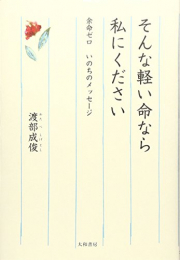 そんな軽い命なら
私にください
余命ゼロ いのちのメッセージ
渡部成俊
大和書房